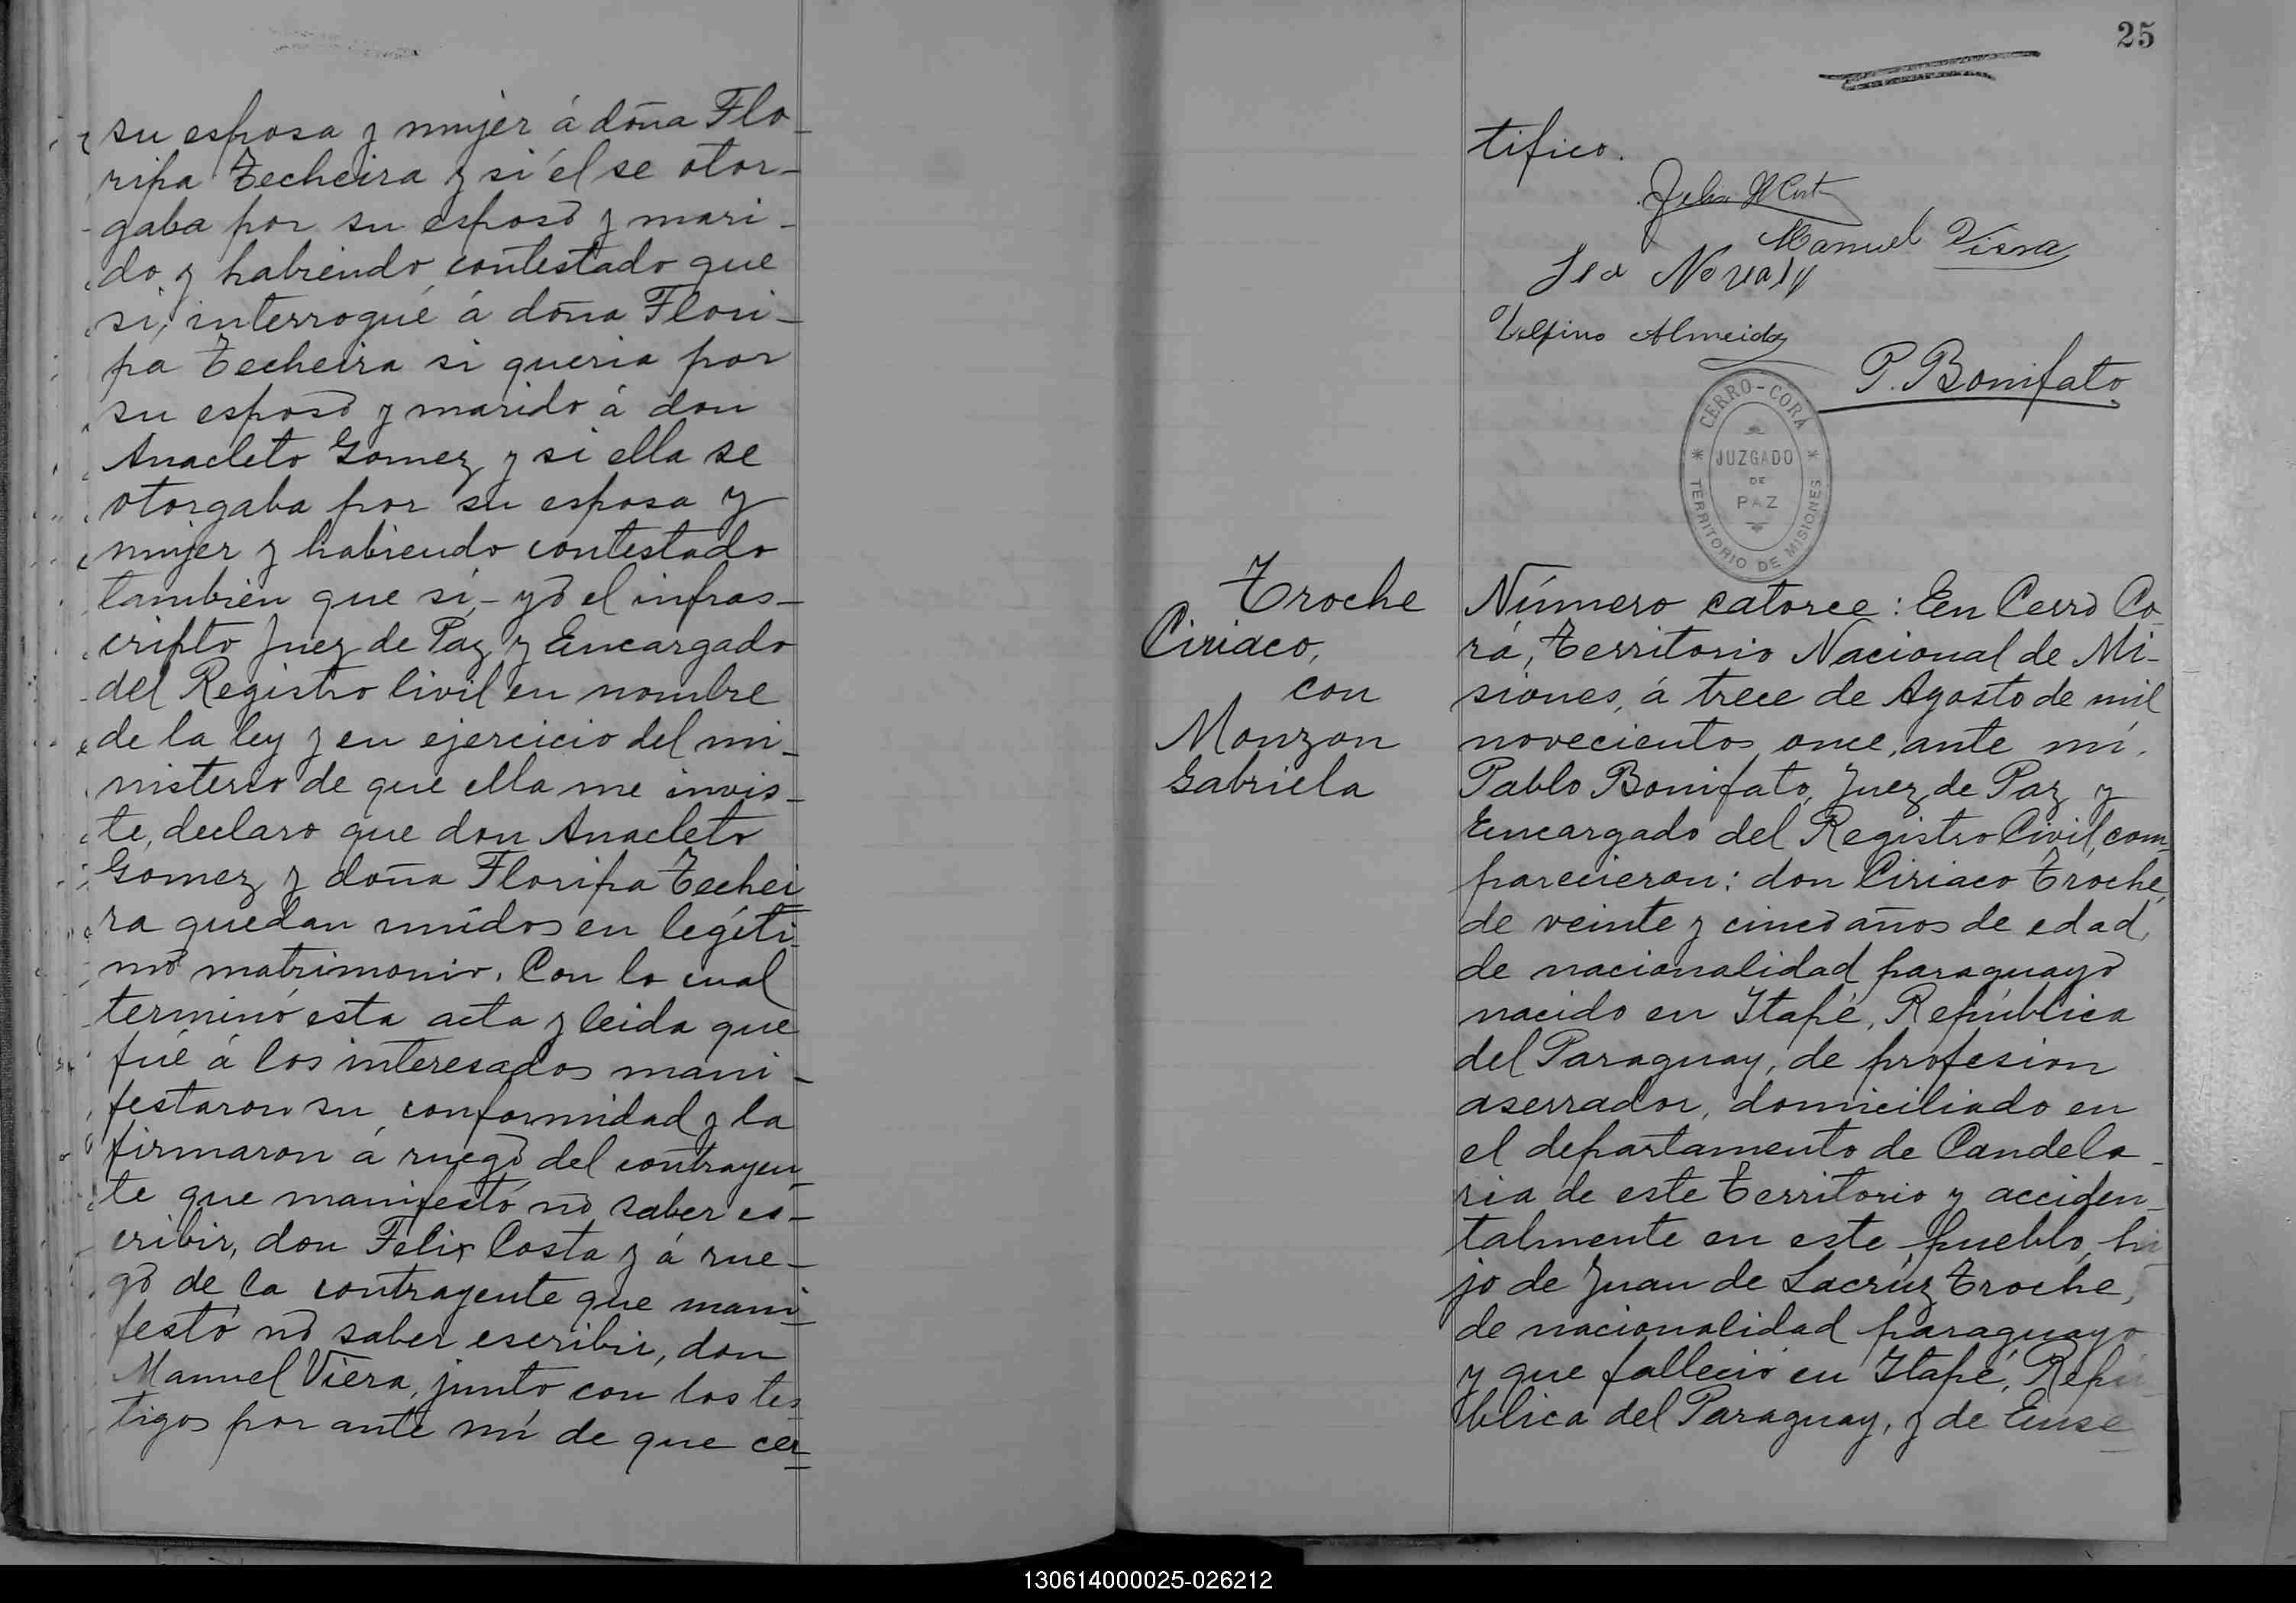 su esposa y mujer á doña Flo-
ripa Techeira y si él se otor-
gaba por su esposo y mari-
do y habiendo contestado que
si, interrogué á doña Flori-
pa Techeira si queria por
su esposo y marido á don
Anacleto Gomez y si ella se
otorgaba por su esposa y
mujer y habiendo contestado
tambien que si,- yo el infras-
cripto Juez de Paz y Encargado
del Registro Civil en nombre
de la ley y en ejercicio del mi-
nisterio de que ella me invis-
te, declaro que don Anacleto
Gomez y doña Floripa Techei-
ra quedan unidos en legíti-
mo matrimonio. Con lo cual
terminó esta acta y leida que
fué á los interesados mani-
festaron su conformidad y la
firmaron á ruego del contrayen-
te que manifestó no saber es-
cribir, don Felix Costa y á rue-
go de la contrayente que mani-
festó no saber escribir, don
Manuel Viera, junto con los tes-
tigos por ante mí de que cer-
25
tifico.
Manuel Viera
Almeida
P. Bonifato
CERRO-CORÁ
JUZGADO
DE
PAZ
TERRITORIO DE MISIONES
Troche
Ciriaco,
con
Monzon
Gabriela
Número catorce: En Cerro Co-
rá, Territorio Nacional de Mi-
siones, á trece de Agosto de mil
novecientos once, ante mí,
Pablo Bonifato, Juez de Paz y
Encargado del Registro Civil, com-
parecieron: don Ciriaco Troche,
de veinte y cinco años de edad,
de nacionalidad paraguayo
nacido en Itapé, República
del Paraguay, de profesion
aserrador, domiciliado en
el departamento de Candela-
ria de este Territorio y acciden-
talmente en este pueblo, hi-
jo de Juan de Lacrúz Troche,
de nacionalidad paraguayo
y que falleció en Itapé, Repú-
blica del Paraguay, y de Euse-
130614000025-026212